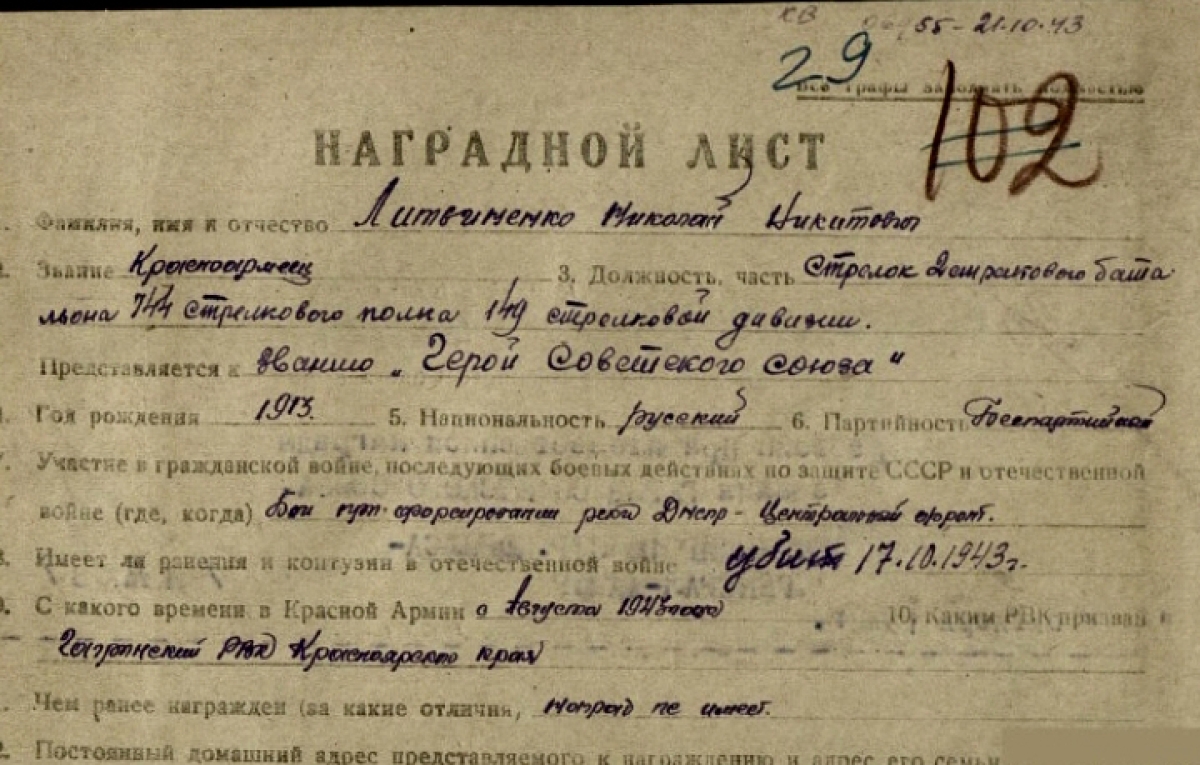 КВ
55-21.10.43
29
Все графы заполнять полностью
102
НАГРАДНОЙ ЛИСТ
Фамилия, имя и отчество Литвиненко Николай Никитович
Звание Красноармеец 3. Должность, часть Стрелок 2 стрелкового бата
льона 744 стрелкового полка 149 стрелковой дивизии.
Представляется к званию „Герой Советского союза"
Год рождения 1913. 5. Национальность русский 6. Партийность Беспартийный
7. Участие в гражданской войне, последующих боевых действиях по защите СССР и отечественной
войне (где, когда) Бои при форсировании реки Днепр - Центральный фронт.
Имеет ли ранения и контузии в отечественной войне убит 17.10.1943г.
С какого времени в Красной Армии с Августа 1943 года 10. Каким РВК призван
РВК Красноярского края
Чем ранее награжден (за какие отличия, наград не имеет.
Постоянный домашний адрес представляемого к награждению и адрес его семьи